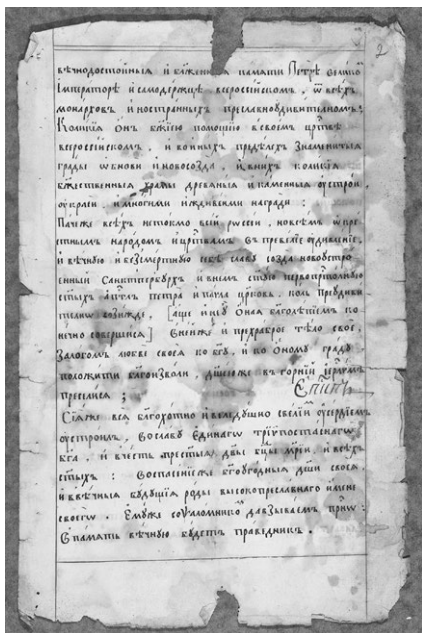 2
вѣчнодостойныя и блаженныя памяти Петрѣ великомъ
Императорѣ и самодержцѣ всероссійскомъ, ѿ всѣхъ
монарховъ иностранныхъ преславноудивителномъ:
Коликія Онъ бжіею помощію въсвоемъ цртвѣ
всероссійскомъ, и воиныхъ предѣлехъ знаменитыя
грады ѡбнови иновосозда, ивнихъ коликія
бжественныя храмы древяныя и каменныя оустрои,
оукраси, имногими иждивенми награди:
Паче же всѣхъ нетокмо всей рѡссіи, новсѣмъ
народомъ и цртвамъ въ превеліе оудивленіе,
и вѣчную и безсмертную себѣ славу созда новоустро
енный Санктпетербурхъ ивнемъ стую первопртолную
стыхъ аптлъ петра и паvла црковь, коль преудиви
телнѡ возижде, [аще и ону благолѣпіемъ ко
нечно соверши́ся] Внейже и прехраброе тѣло свое,
Залогомъ любве своея ко бгу, и ко Оному граду
положити благоизволи, дшею же въ горній іерлимъ
преселися;
Сія же вся благохотно и всеусердно
оустроилъ, Вославу Единагѡ тріvпостаснагѡ
бга, и вчесть престыя двы бцы мріи, и всѣхъ
стыхъ: Воспасеніе же бгоугодныя дши своея
и ввѣчныя будущія роды высокопреславнаго имене
своегѡ. Ему же соѵломникомъ давзываемъ
Впамять вѣчную будетъ праведникъ.